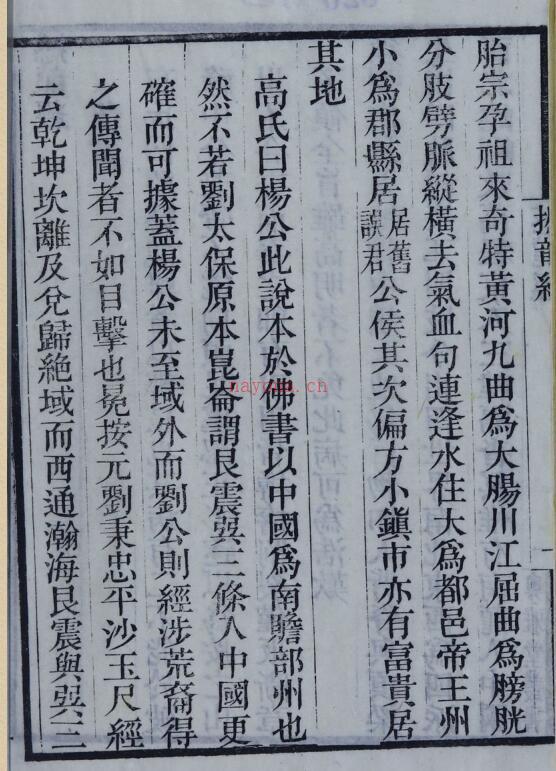 胎宗孕祖來奇特黃河九曲爲大腸川江屈曲爲膀胱
分肢劈脈縱橫去氣血句連逢水住大爲都邑帝王州
小爲郡縣居居舊誤君公侯其次偏方小鎮市亦有富貴居
其地
高氏曰楊公此說本於佛書以中國爲南贍部州也
然不若劉太保原本崑崙謂艮震巽三條入中國更
確而可據蓋楊公未至域外而劉公則經涉荒裔得
之傳聞者不如目擊也晃按元劉秉忠平沙玉尺經
云乾坤坎離及兌歸絶域而西通瀚海艮震與巽三
龍經
nayona.cn